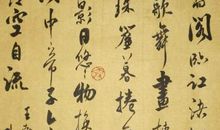 閣臨江渚
歌舞畫棟
珠簾暮捲
影日悠物換
閣中帝子
空自流 王